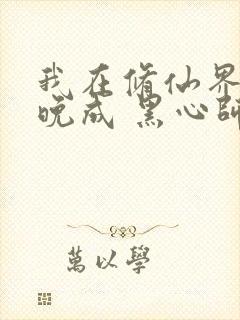 我在脩仙界
晚成 黑心師
萬以學